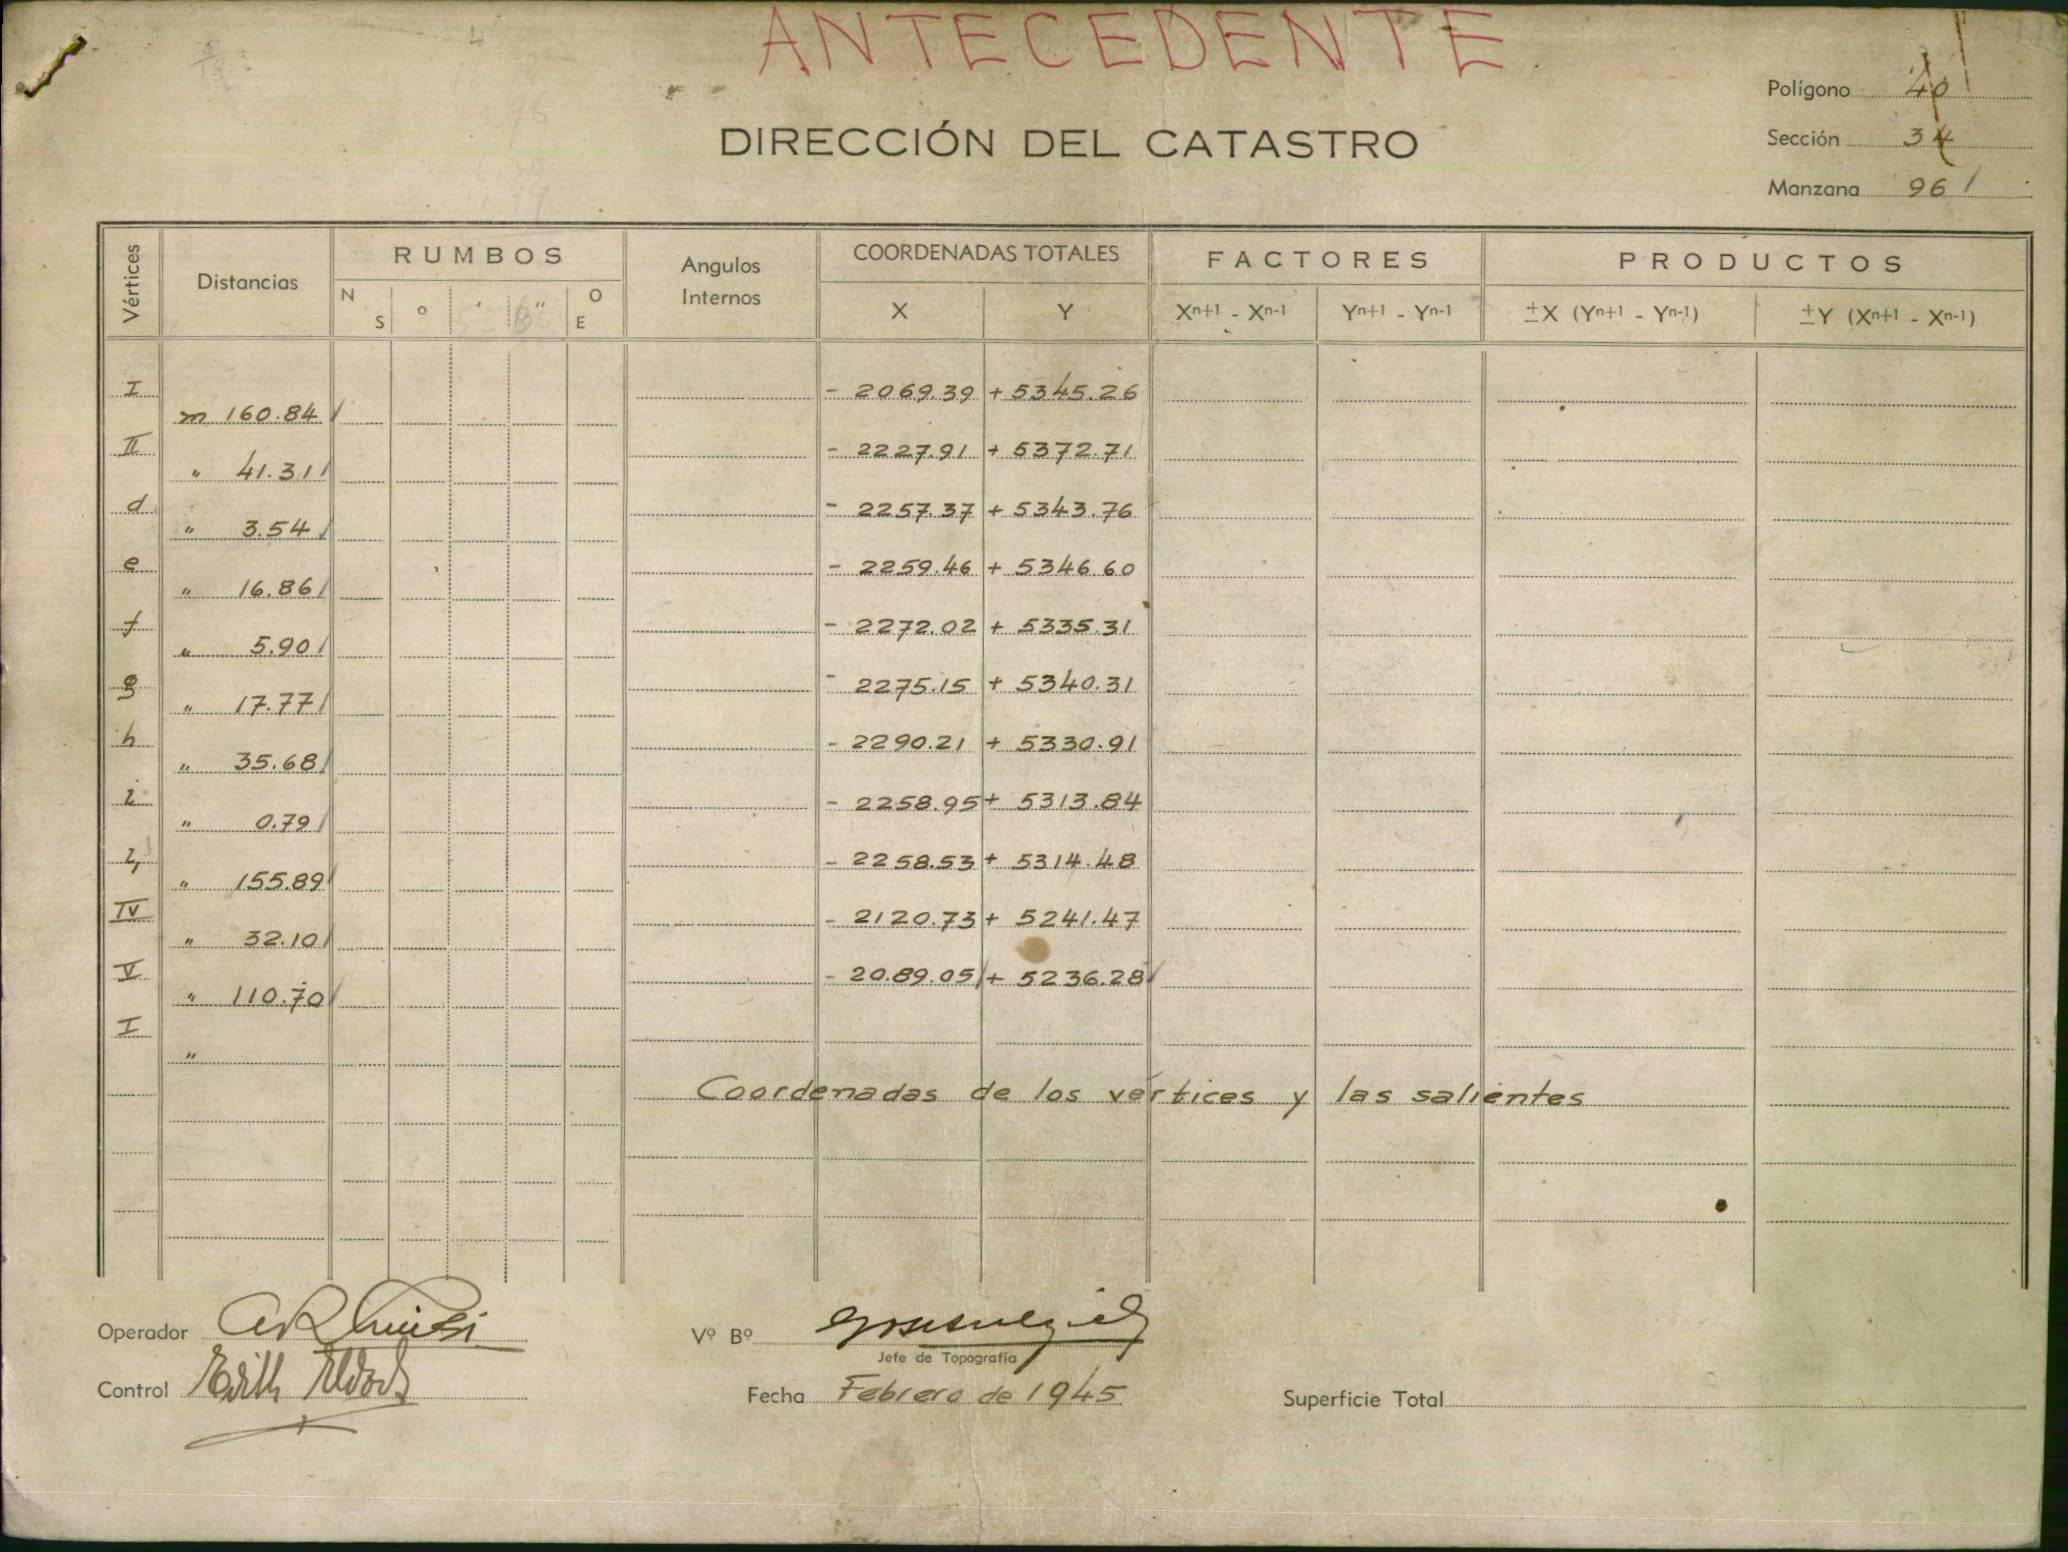 ANTECEDENTE
Polígono 40
DIRECCIÓN DEL CATASTRO
Sección 34
Manzana 96
Vértices Distancias RUMBOS Angulos Internos COORDENADAS TOTALES FACTORES PRODUCTOS
N S ° ' " O E X Y Xn+1 - Xn-1 Yn+1 - Yn-1 ±X (Yn+1 - Yn-1) ±Y (Xn+1 - Xn-1)
I - 2069.39 + 5345.26
m 160.84
II - 2227.91 + 5372.71
" 41.31
d - 2257.37 + 5343.76
" 3.54
e - 2259.46 + 5346.60
" 16.86
f - 2272.02 + 5335.31
" 5.90
g - 2275.15 + 5340.31
" 17.77
h - 2290.21 + 5330.91
" 35.68
i - 2258.95 + 5313.84
" 0.79
i, - 2258.53 + 5314.48
" 155.89
IV - 2120.73 + 5241.47
" 32.10
V - 20.89.05 + 5236.28
" 110.70
I
"
Coordenadas de los vértices y las salientes
Operador
Vº Bº
Jefe de Topografía
Control
Fecha Febrero de 1945
Superficie Total